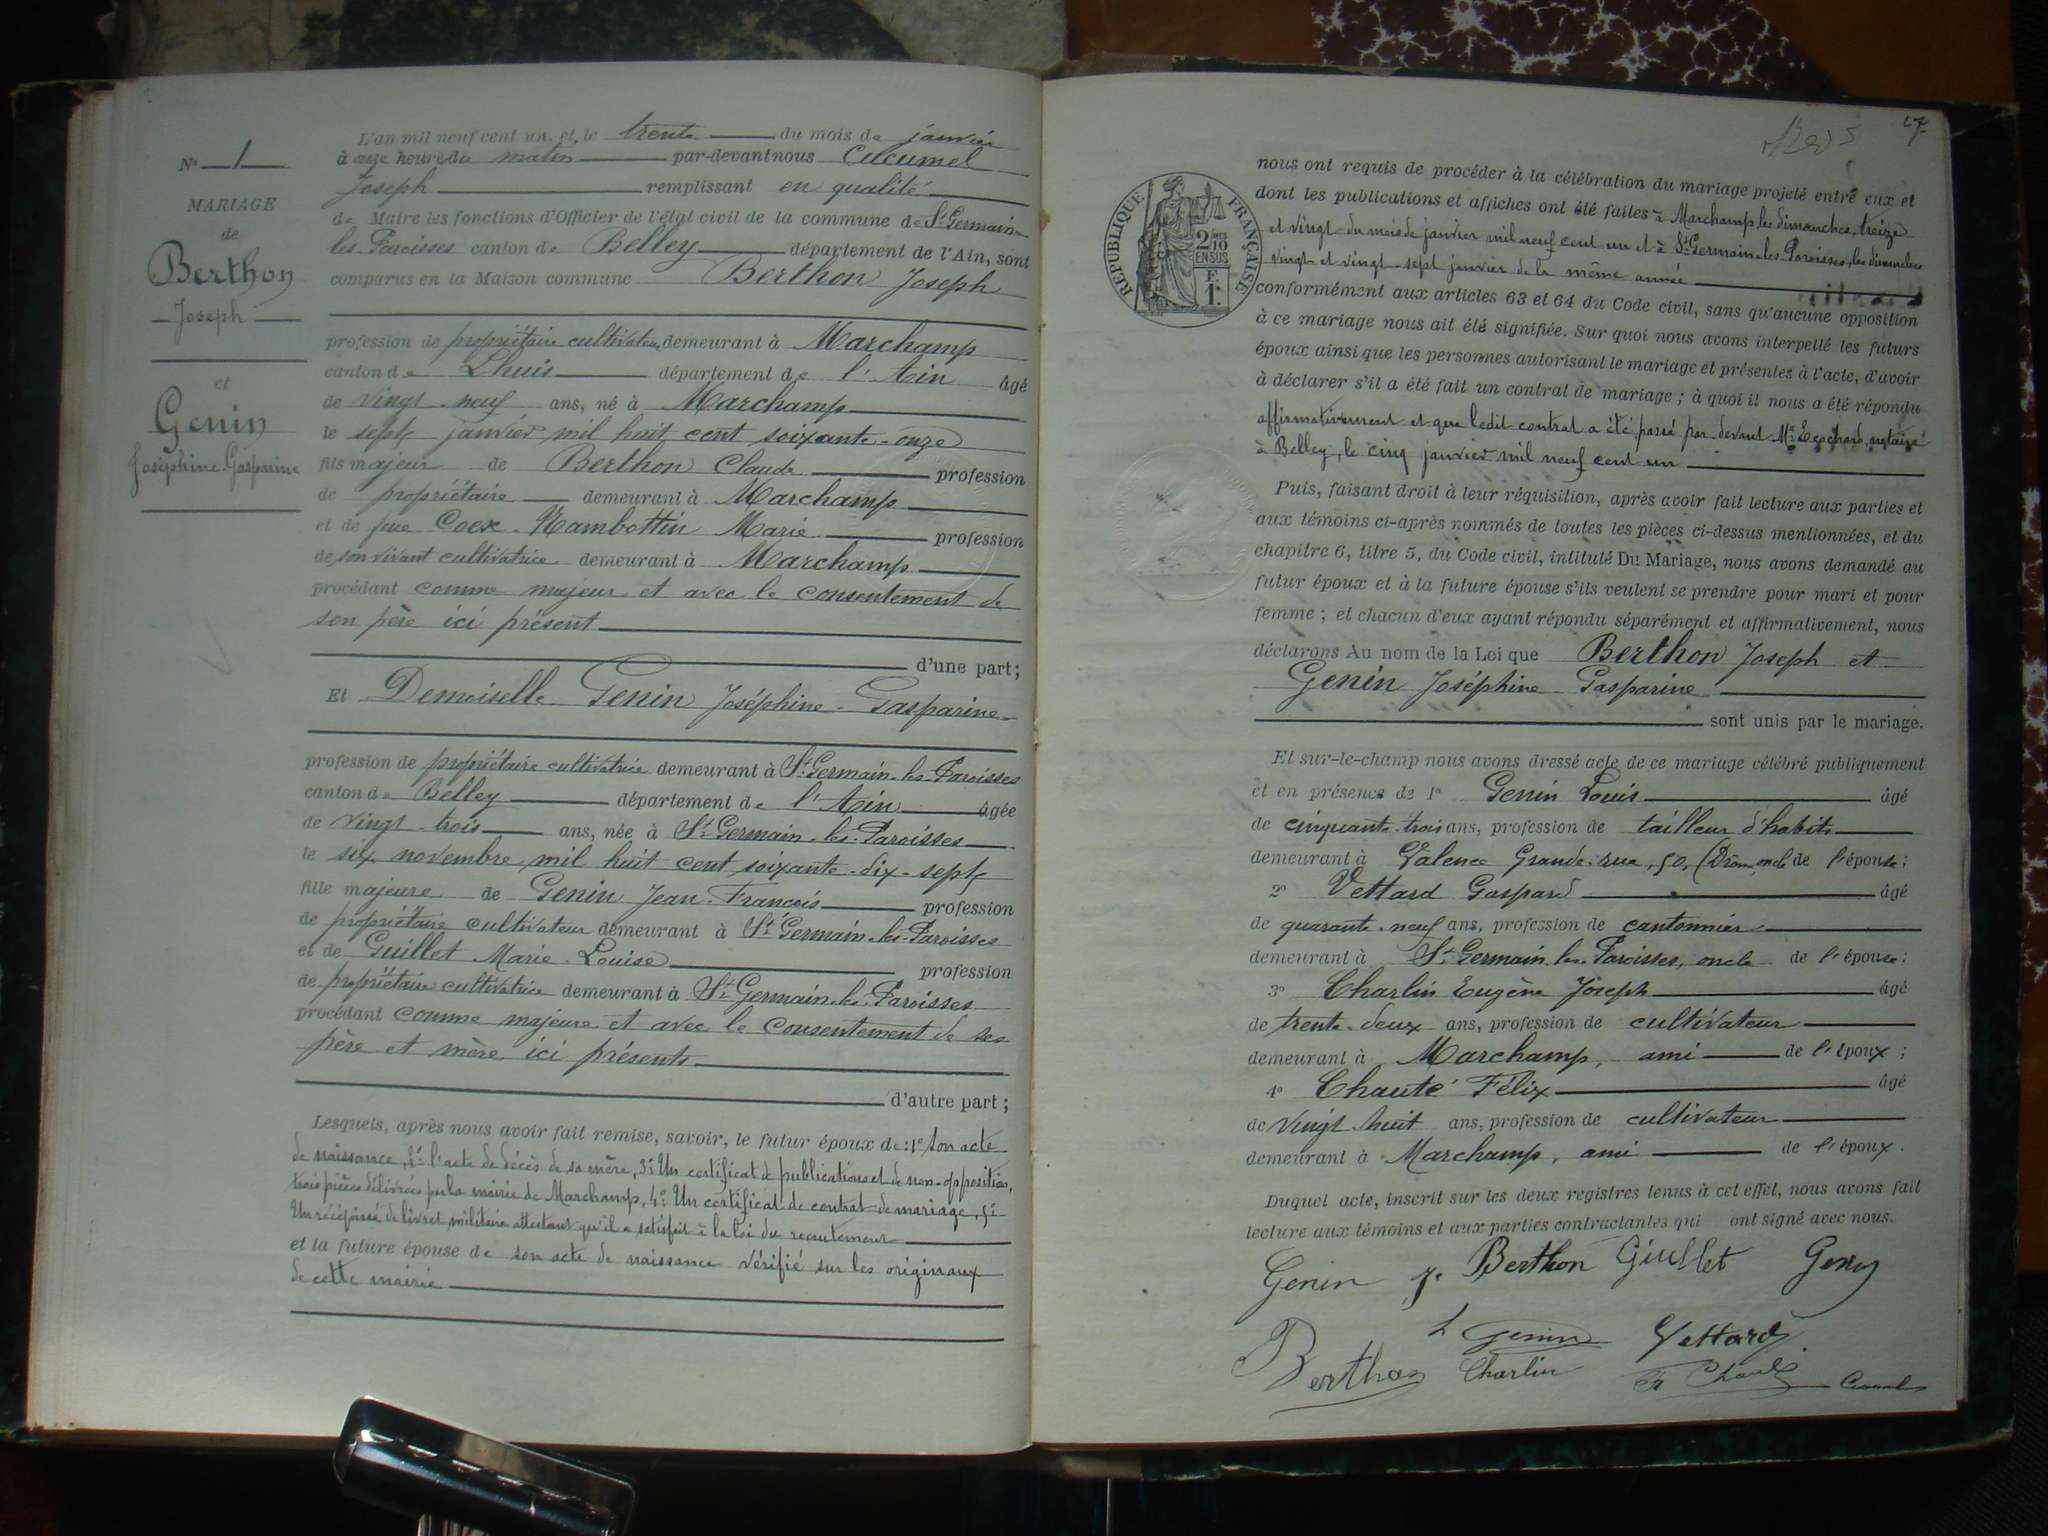 N° 1
MARIAGE
de
Berthon
Joseph
et
Genin
Joséphine-Gasparine
L'an mil neuf cent un, et, le trente du mois de janvier
à onze heures du matin par-devant nous Cucumel
Joseph remplissant en qualité
de Maire les fonctions d'Officier de l'état civil de la commune de St Germain-
les-Paroisses canton de Belley département de l'Ain, sont
comparus en la Maison commune Berthon Joseph
profession de propriétaire cultivateur demeurant à Marchamp
canton de Lhuis département de l'Ain âgé
de vingt-neuf ans, né à Marchamp
le sept janvier mil huit cent soixante-onze
fils majeur de Berthon Claude profession
de propriétaire demeurant à Marchamp
et de feue Coex-Nambottin Marie profession
de son vivant cultivatrice demeurant à Marchamp
procédant comme majeur et avec le consentement de
son père ici présent
d'une part;
Et Demoiselle Genin Joséphine-Gasparine
profession de propriétaire cultivatrice demeurant à St Germain-les-Paroisses
canton de Belley département de l'Ain âgée
de vingt-trois ans, née à St Germain-les-Paroisses
le six novembre mil huit cent soixante-dix-sept
fille majeure de Genin Jean-François profession
de propriétaire cultivateur demeurant à St Germain-les-Paroisses
et de Guillet Marie-Louise profession
de propriétaire cultivatrice demeurant à St Germain-les-Paroisses
procédant comme majeure et avec le consentement de ses
père et mère ici présents
d'autre part;
Lesquels, après nous avoir fait remise, savoir, le futur époux de: 1° son acte
de naissance, 2° l'acte de décès de sa mère, 3° Un certificat de publications et de non-opposition,
trois pièces délivrées par la mairie de Marchamp, 4° Un certificat de contrat de mariage, 5°
Un récépissé de livret militaire attestant qu'il a satisfait à la loi du recrutement
et la future épouse de son acte de naissance vérifié sur les originaux
de cette mairie
27
RÉPUBLIQUE FRANÇAISE
2 MES
10
EN SUS
F.
1.
nous ont requis de procéder à la célébration du mariage projeté entre eux et
dont les publications et affiches ont été faites à Marchamp les dimanches, treize
et vingt du mois de janvier mil neuf cent un et à St Germain-les-Paroisses, les dimanches
vingt et vingt-sept janvier de la même année
conformément aux articles 63 et 64 du Code civil, sans qu'aucune opposition
à ce mariage nous ait été signifiée. Sur quoi nous avons interpellé les futurs
époux ainsi que les personnes autorisant le mariage et présentes à l'acte, d'avoir
à déclarer s'il a été fait un contrat de mariage; à quoi il nous a été répondu
affirmativement et que ledit contrat a été passé par-devant Me Ecochard, notaire
à Belley, le cinq janvier mil neuf cent un
Puis, faisant droit à leur réquisition, après avoir fait lecture aux parties et
aux témoins ci-après nommés de toutes les pièces ci-dessus mentionnées, et du
chapitre 6, titre 5, du Code civil, intitulé Du Mariage, nous avons demandé au
futur époux et à la future épouse s'ils veulent se prendre pour mari et pour
femme; et chacun d'eux ayant répondu séparément et affirmativement, nous
déclarons Au nom de la Loi que Berthon Joseph et
Genin Joséphine Gasparine
sont unis par le mariage.
Et sur-le-champ nous avons dressé acte de ce mariage célébré publiquement
et en présence de 1° Genin Louis âgé
de cinquante-trois ans, profession de tailleur d'habits
demeurant à Valence Grande-rue, 50, (Drôme oncle de l'épouse;
2° Vettard Gaspard âgé
de quarante-neuf ans, profession de cantonnier
demeurant à St Germain-les-Paroisses, oncle de l'épouse;
3° Charlin Eugène Joseph âgé
de trente-deux ans, profession de cultivateur
demeurant à Marchamp, ami de l'époux;
4° Chauté Félix âgé
de vingt-huit ans, profession de cultivateur
demeurant à Marchamp, ami de l'époux.
Duquel acte, inscrit sur les deux registres tenus à cet effet, nous avons fait
lecture aux témoins et aux parties contractantes qui ont signé avec nous.
Genin J. Berthon Guillet Genin
Berthon L Genin Vettard
Charlin